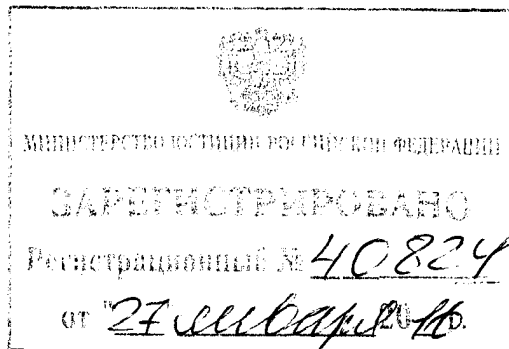 МИНИСТЕРСТВО ЮСТИЦИИ РОССИЙСКОЙ ФЕДЕРАЦИИ
ЗАРЕГИСТРИРОВАНО
Регистрационный № 40824
от "27 января 2016.